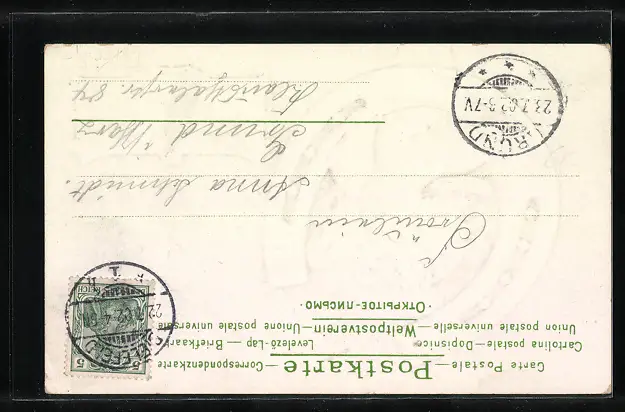 Carte Postale — Postkarte — Correspondenzkarte
Cartolina postale — Dopisnice — Levelező-Lap — Briefkaart
Union postale universelle — Weltpostverein — Unione postale universale
· ОТКРЫТОЕ-ПИСЬМО ·
5 5
REICH
22.7.02.4
Fräulein
Anna Schmidt.
Grund /Harz
Clausthalerstr. 84
GRUND
23.7.02.6-7V